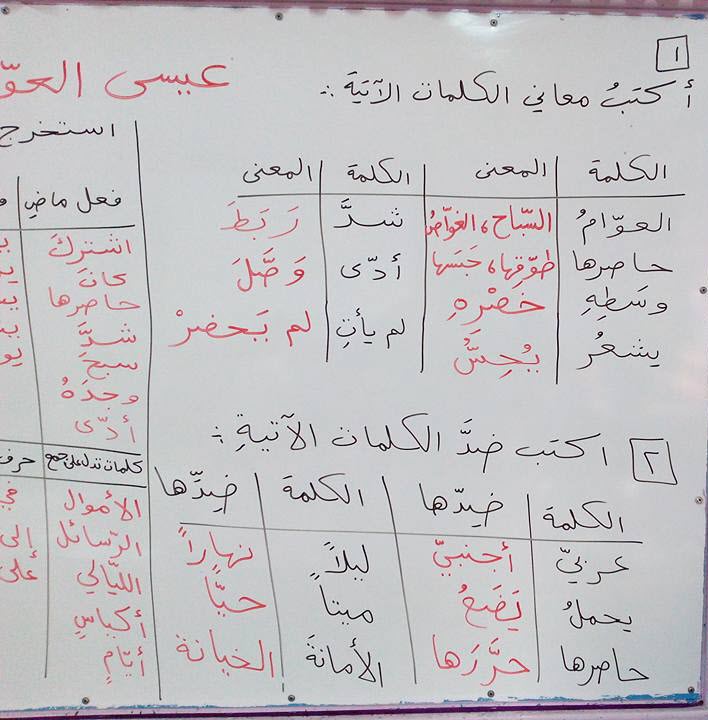 عيسى العوّ
١
أكتبُ معاني الكلمات الآتيَةَ :
الكلمة | المعنى | الكلمة | المعنى
العوّامُ | السّباح، الغوّاصُ | شدَّ | رَبَطَ
حاصرها | طوّقها، حَبَسها | أدّى | وَصَّلَ
وسَطِهِ | خَصْرِهِ | لم يأتِ | لم يَحضرْ
يشعُر | يُحِسُّ
٢
اكتب ضدَّ الكلمات الآتيةِ :
الكلمة | ضِدّها | الكلمة | ضِدّها
عربيّ | أجنبيّ | ليلاً | نهاراً
يحملُ | يَضَعُ | ميتا | حيّا
حاصرها | حرَّرَها | الأمانةَ | الخيانة
استخرج
فعل ماضِ
اشتركَ
كانَ
حاصرها
شدَّ
سبحَ
وجدَهُ
أدّى
كلمات تدل على جمع | حرف
الأموال | في
الرّسائل | إلى
اللّيالي | على
أكياسِ
أيّامٍ